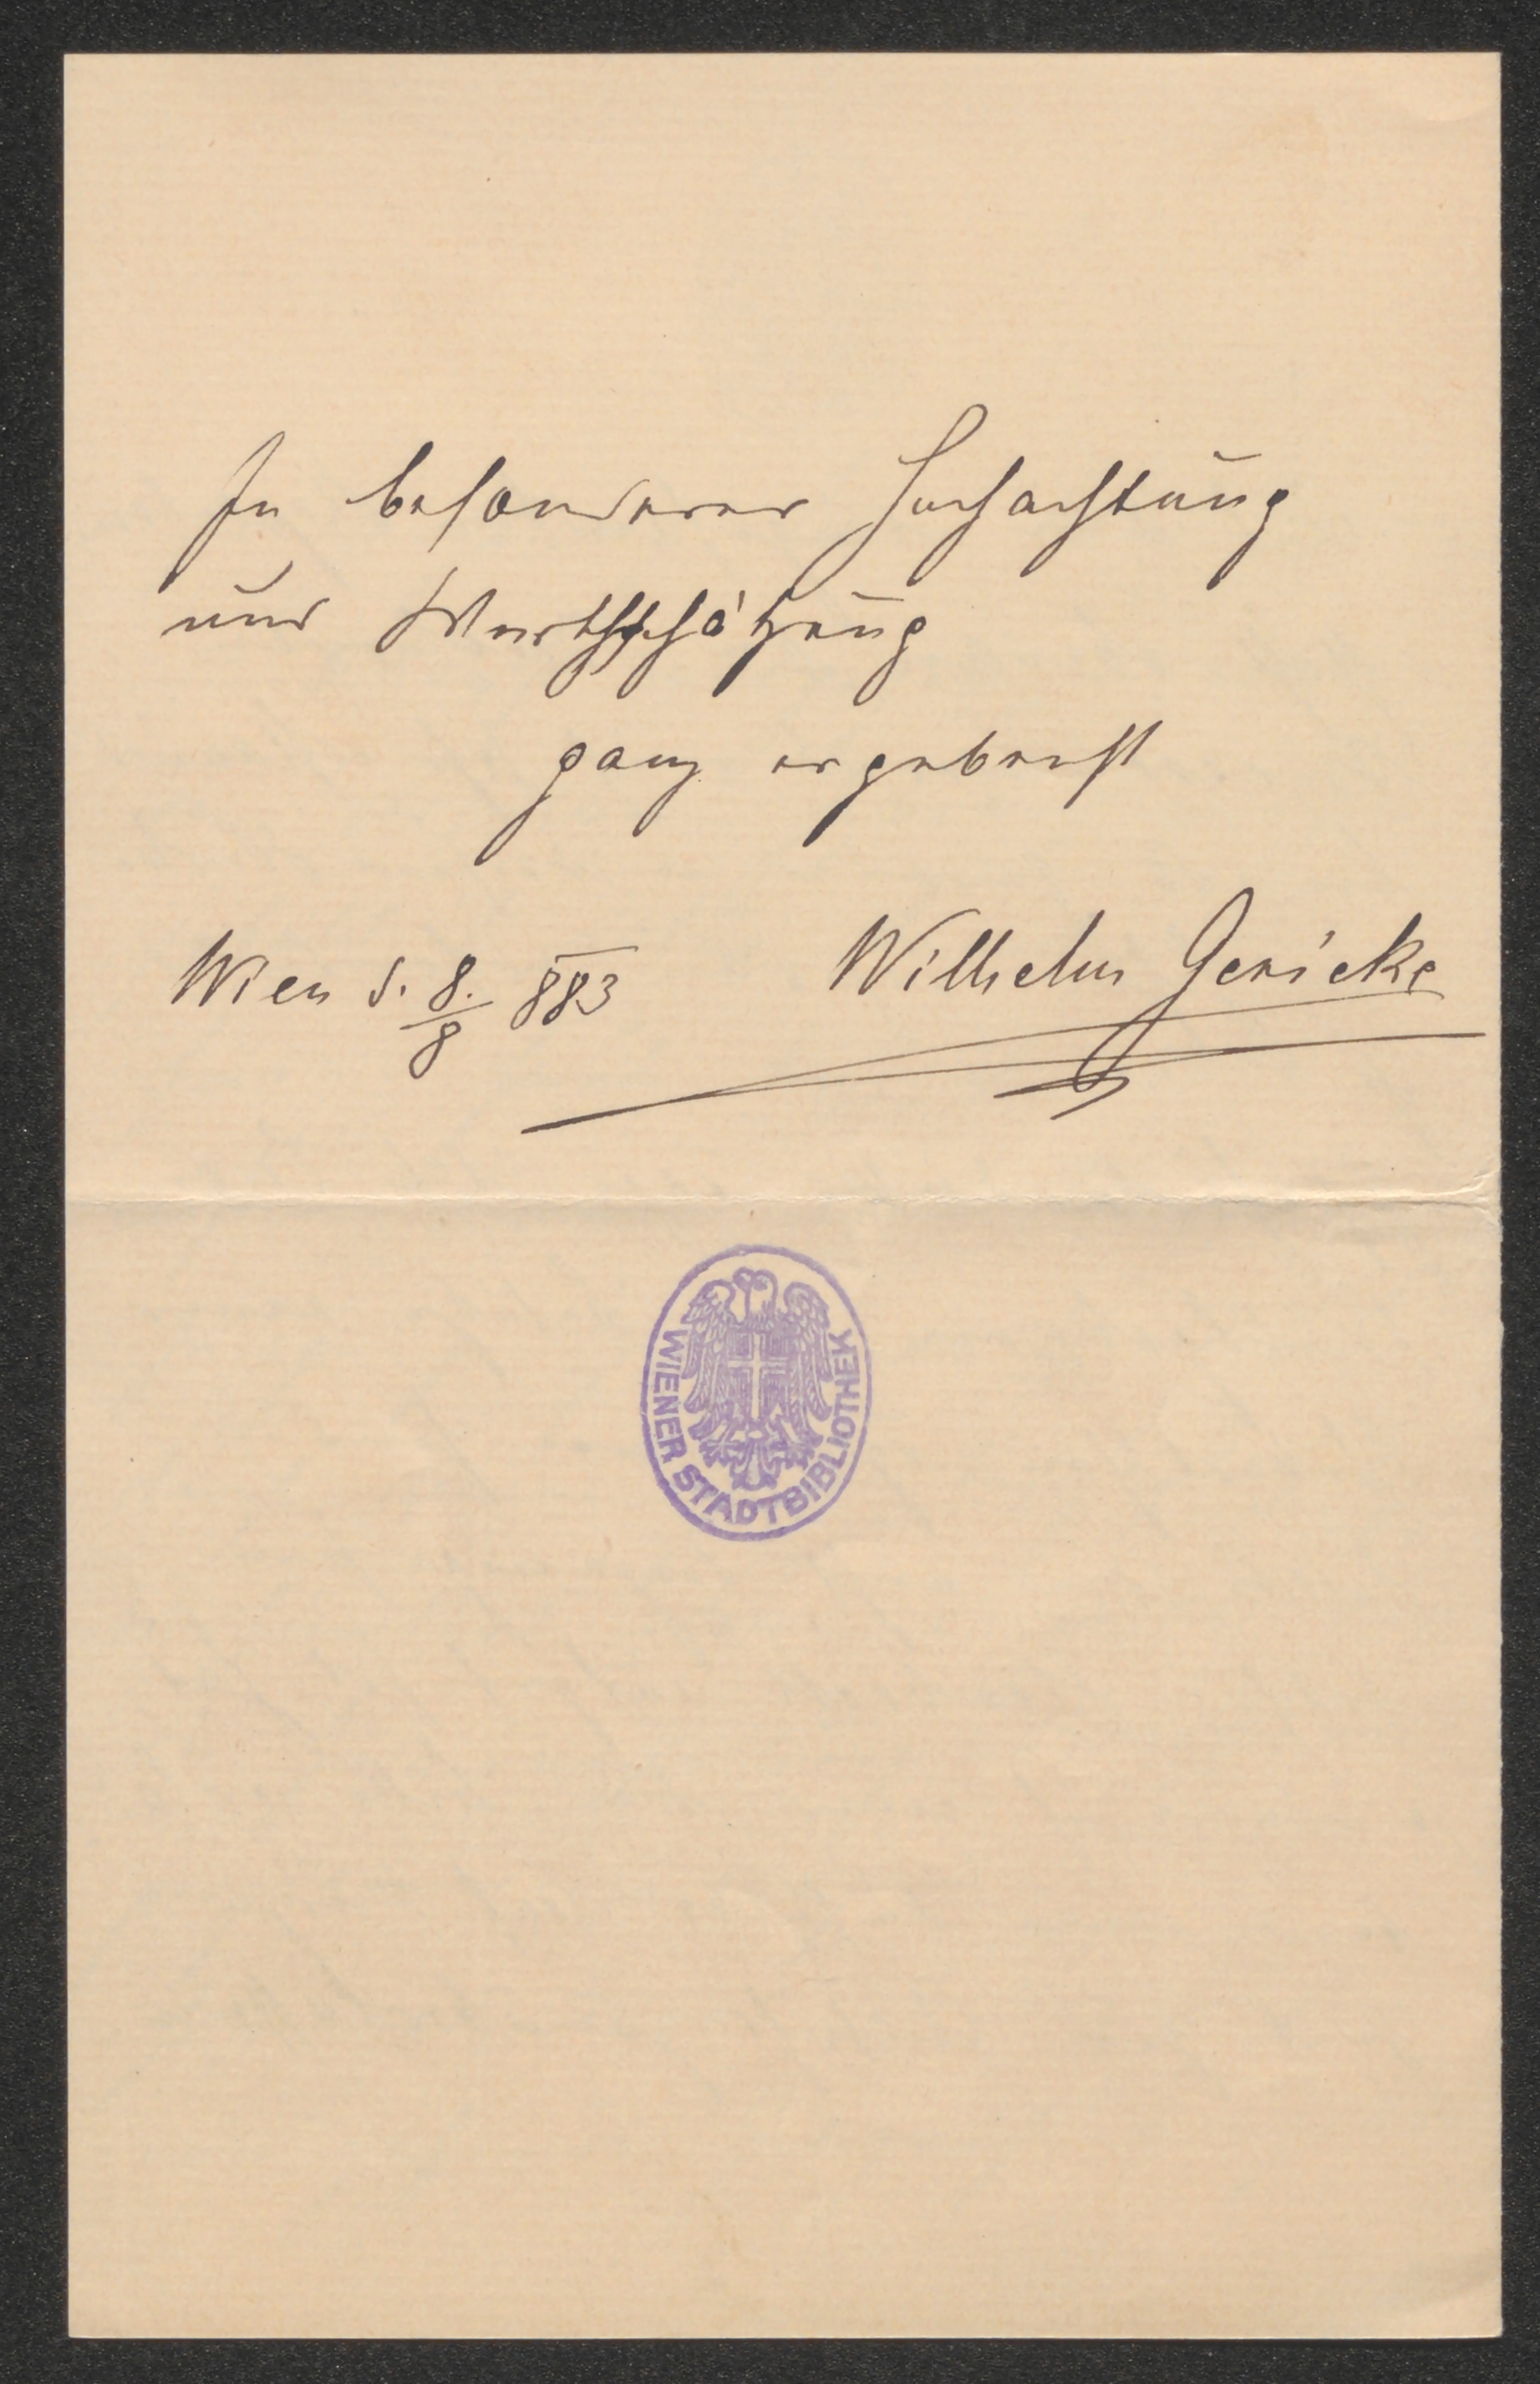 In besonderer Hochachtung
und Werthschätzung
ganz ergebenst
Wien d. 8./8 883
Wilhelm Gericke
WIENER STADTBIBLIOTHEK